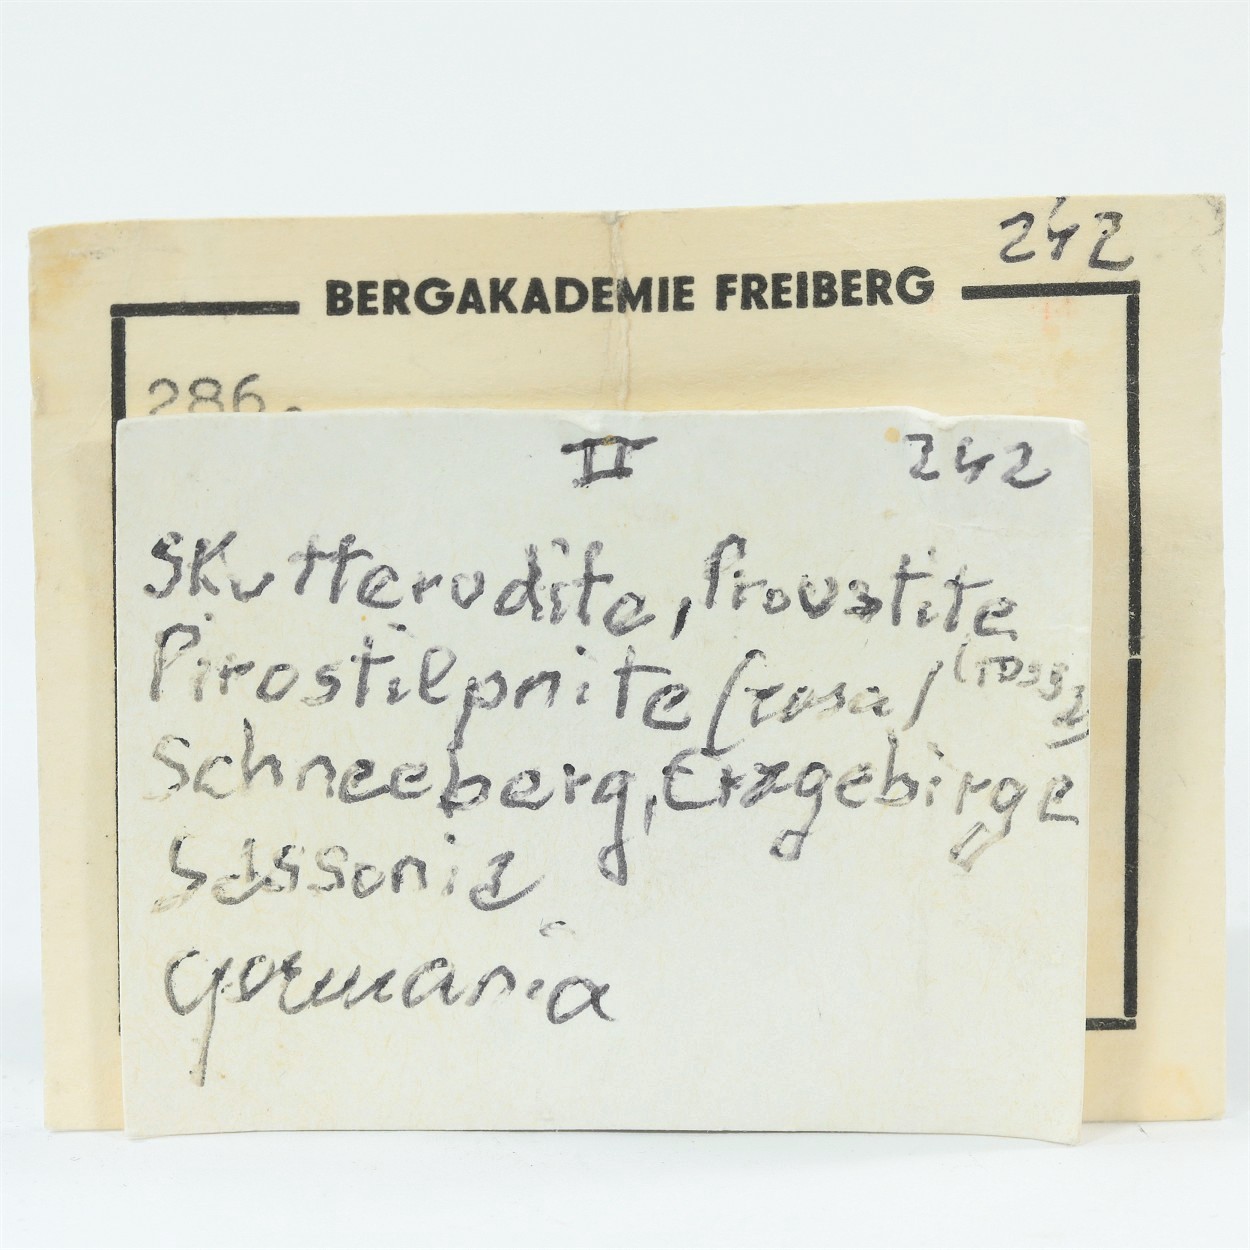 242
BERGAKADEMIE FREIBERG
286.
II 242
Skutterudite, Proustite
Pirostilpnite (rosa) (rossa)
Schneeberg, Erzgebirge
Sassonia
Germania